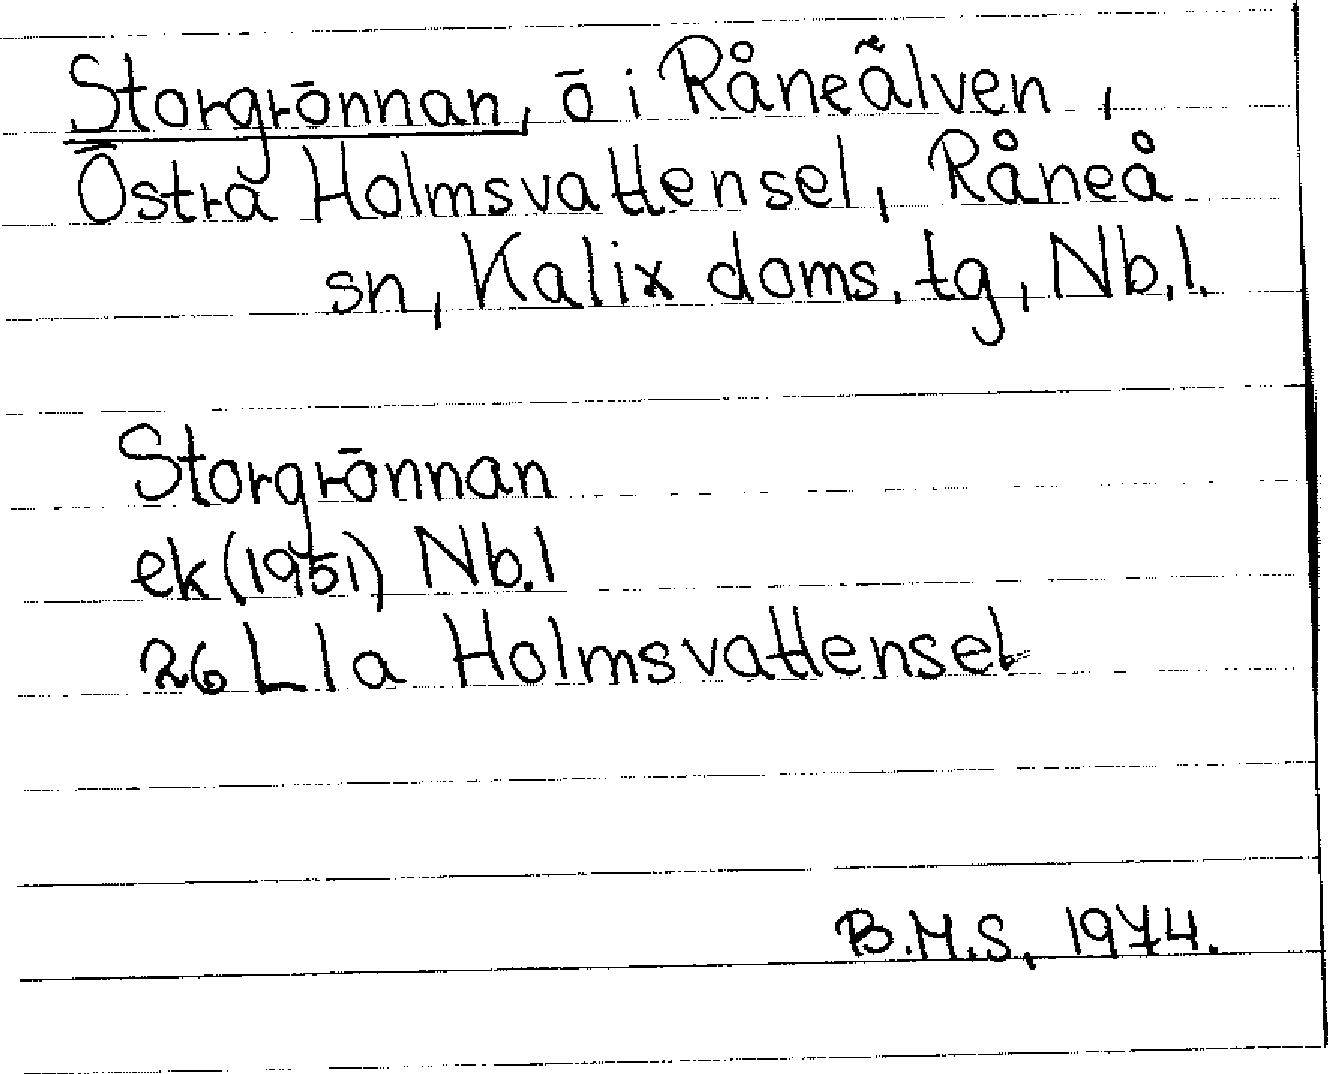 Storgrönnan, ö i Råneälven,
Östra Holmsvattensel, Råneå
sn, Kalix doms. tg, Nb.l.
Storgrönnan
ek (1951) Nb.l
26 L 1a Holmsvattensel
B.M.S, 1974.